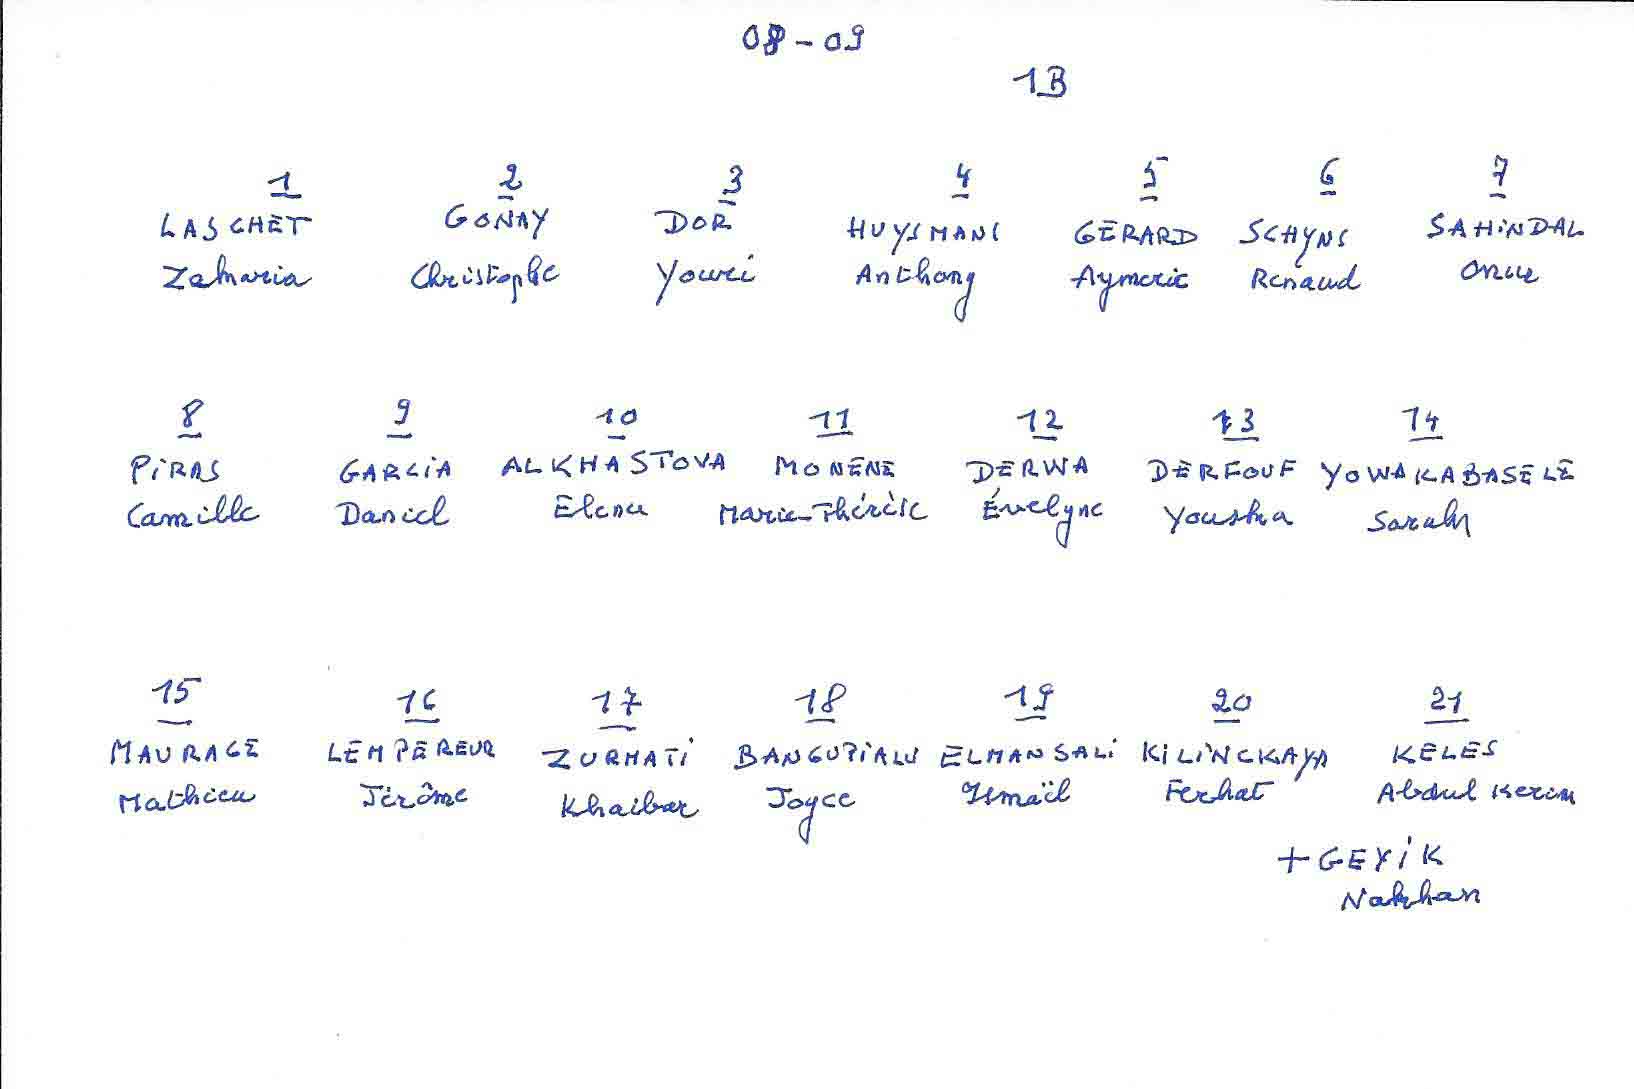 08-09
1B
1 2 3 4 5 6 7
LASCHET GONAY DOR HUYSMANS GERARD SCHYNS SAHINDAL
Christophe Youri Anthony Aymeric Renaud Onur
8 9 10 11 12 13 14
PIRAS GARCIA ALKHASTOVA MONENE DERWA DERFOUF YOWAKABASELE
Camille Daniel Elena Marie-Thérèse Évelyne Yousra Sarah
15 16 17 18 19 20 21
MAURAGE LEMPEREUR ZURMATI ELMANSALI KILINCKAYA KELES
Mathieu Jérôme Khaibar Joyce Ismaïl Ferhat Abdul Kerim
+GEYIK